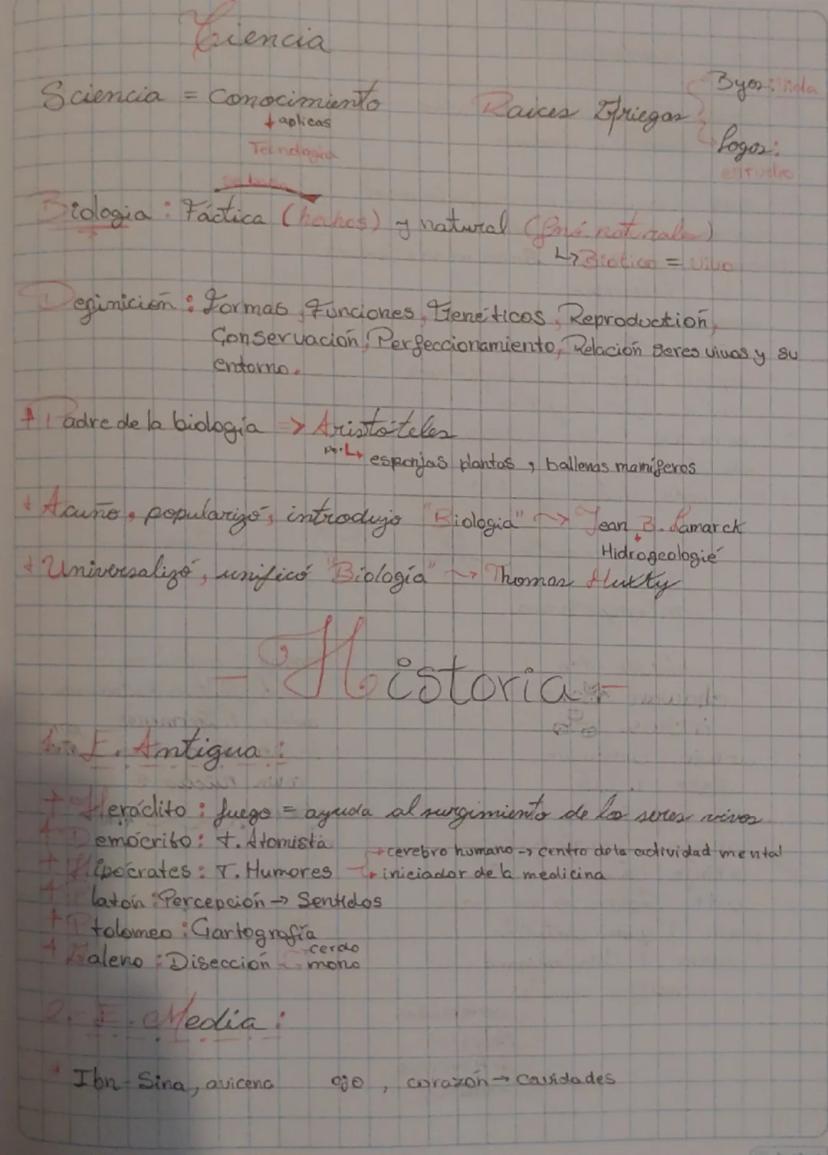 Ciencia
Sciencia = Conocimiento
↓ aplicas
Tecnología
Raices Griegas
Byos: vida
Logos:
estudio
Biologia: Fáctica (hechos) y natural (fenó naturales)
↳ Biotico = vivo
Definición: Formas, Funciones, Genéticos, Reproductión,
Conservación, Perfeccionamiento, Relación seres vivos y su
entorno.
+ Padre de la biología => Aristóteles
↳ esponjas plantas, ballenas mamíferos
+ Acuño, popularizó, introdujo "Biologia" ~> Jean B. Lamarck
Hidrogeologié
+ Universalizó, unificó "Biología" ~> Thomas Huxty
- Historia -
1. E. Antigua:
+ Heráclito: fuego = ayuda al surgimiento de los seres vivos
+ Demócrito: t. Atomista → cerebro humano → centro de la actividad mental
+ Hipócrates: T. Humores → iniciador de la medicina
+ Platón: Percepción → Sentidos
+ Ptolomeo: Cartografía
+ Galeno: Disección cerdo
mono
2. E. Media:
* Ibn-Sina, avicena ojo, corazón → cavidades